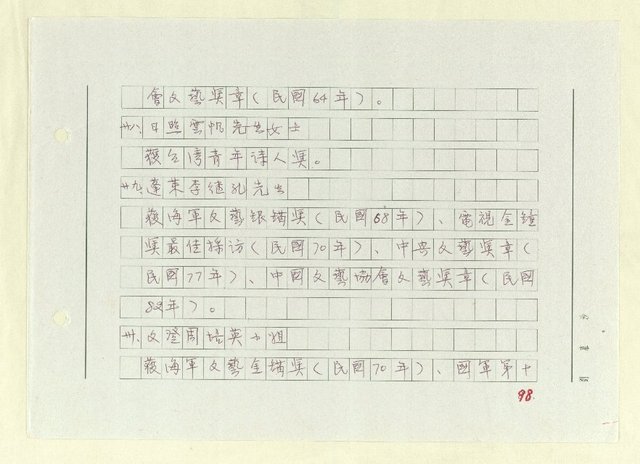 會文藝奬章(民國64年)。
卅八、日照雲帆先生女士
獲台灣青年詩人奬。
卅九、蓬萊李继孔先生
獲海軍文藝银描奬(民國68年)、電視金鐘
奬最佳採访(民國70年)、中央文藝奬章(
民國77年)、中國文藝協會文藝奬章(民國
82年)。
卌、文登周培英小姐
獲海軍文藝金描奬(民國70年)、國軍第十
98.